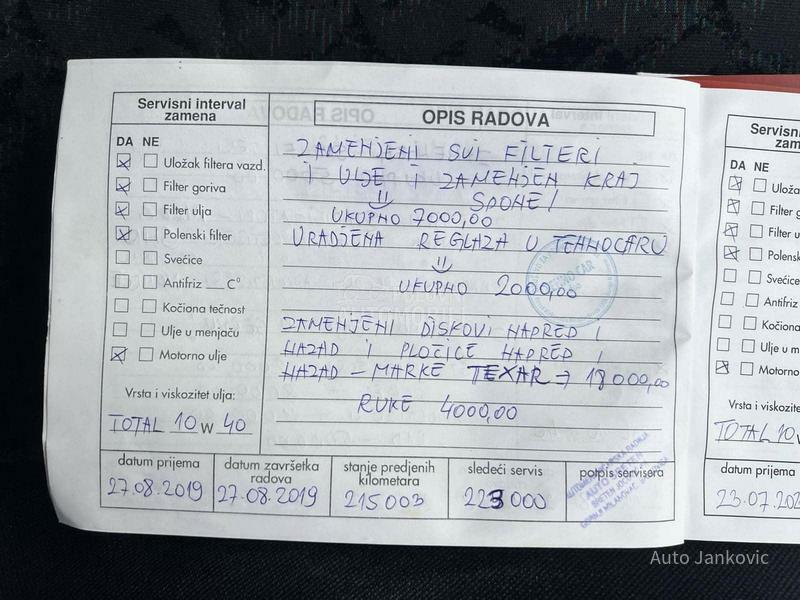 Servisni interval
zamena
DA NE
Uložak filtera vazd.
Filter goriva
Filter ulja
Polenski filter
Svećice
Antifriz ___ C°
Kočiona tečnost
Ulje u menjaču
Motorno ulje
Vrsta i viskozitet ulja:
TOTAL 10 W 40
OPIS RADOVA
ZAMENJENI SVI FILTERI
I ULJE I ZAMENJEN KRAJ
SPONE!
UKUPNO 7000,00
URADJENA REGLAZA U TEHNOCARU
UKUPNO 2000,00
ZAMENJENI DISKOVI NAPRED I
NAZAD I PLOČICE NAPRED I
NAZAD - MARKE TEXAR → 18000,00
RUKE 4000,00
datum prijema
27.08.2019
datum završetka
radova
27.08.2019
stanje predjenih
kilometara
215003
sledeći servis
223000
potpis servisera
Servisni
zam
DA NE
Uloža
Filter g
Filter u
Polensk
Svećice
Antifriz
Kočiona
Ulje u m
Motorno
Vrsta i viskozite
TOTAL 10
datum prijema
23.07.202
Auto Jankovic